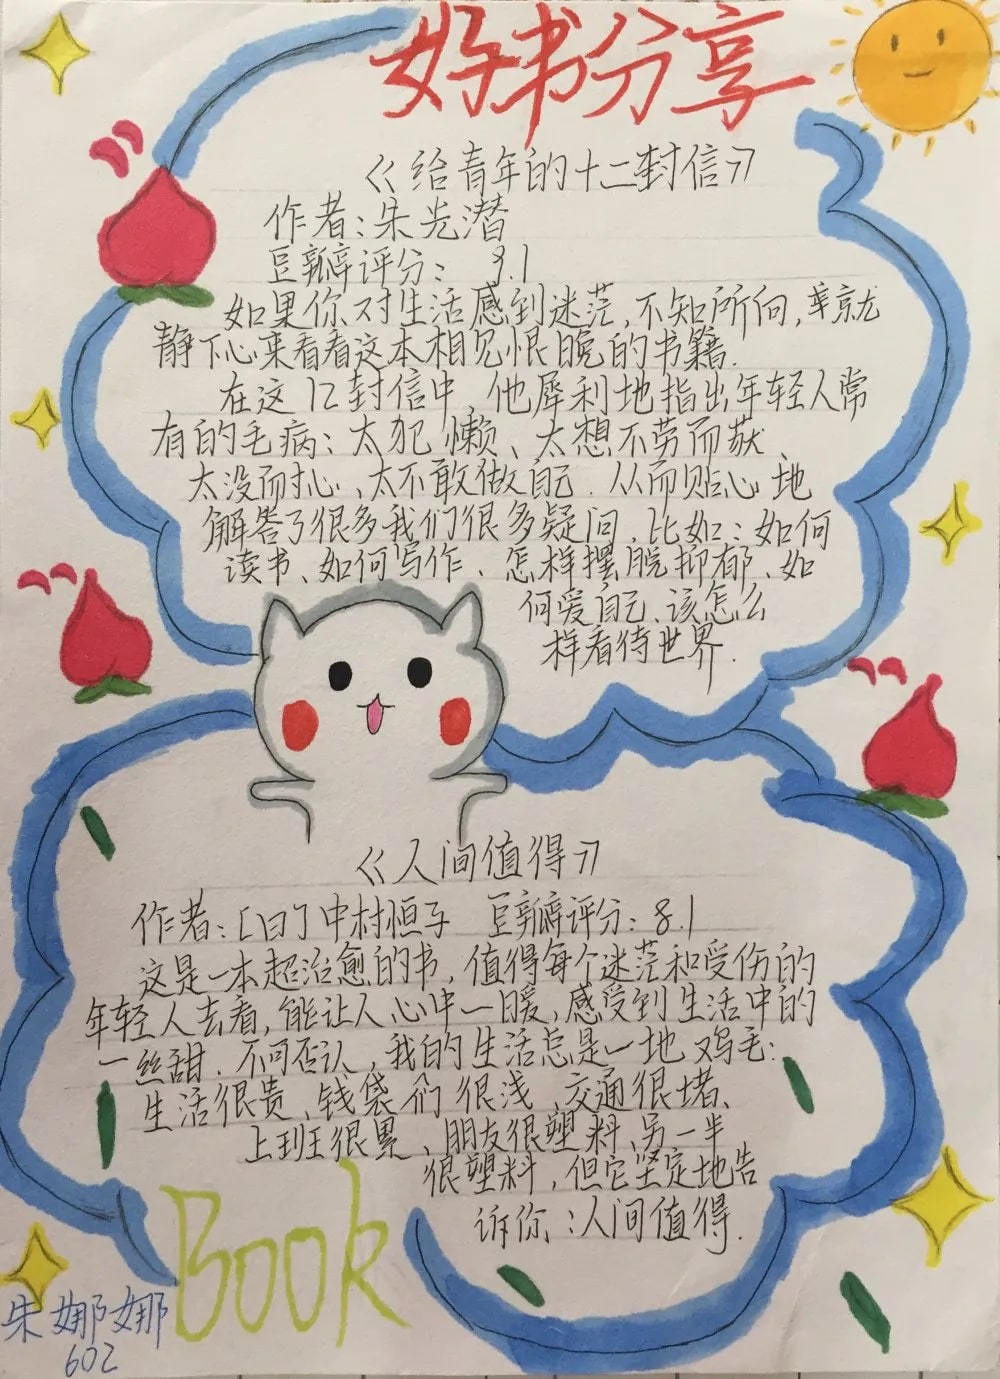 好书分享
《给青年的十二封信》
作者:朱光潜
豆瓣评分: 9.1
如果你对生活感到迷茫,不知所向,
静下心来看看这本相见恨晚的书籍.
在这12封信中,他犀利地指出年轻人常
有的毛病:太犯懒、太想不劳而获、
太没耐心、太不敢做自己.从而贴心地
解答了很多我们很多疑问,比如:如何
读书、如何写作、怎样摆脱抑郁、如
何爱自己、该怎么
样看待世界.
《人间值得》
作者:[日]中村恒子 豆瓣评分:8.1
这是一本超治愈的书,值得每个迷茫和受伤的
年轻人去看,能让人心中一暖,感受到生活中的
一丝甜.不可否认,我的生活总是一地鸡毛:
生活很贵、钱袋们很浅、交通很堵、
上班很累、朋友很塑料、另一半
很塑料,但它坚定地告
诉你:人间值得.
Book
朱娜娜
602